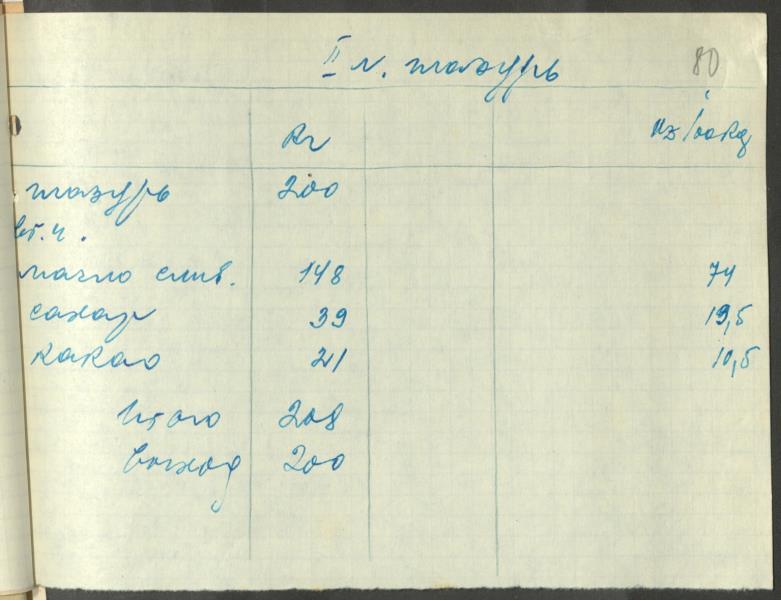 II л. глазурь 80
Кг на 100кг
глазурь 200
в т.ч.
масло слив. 148 74
сахар 39 19,5
какао 21 10,5
Итого 208
выход 200